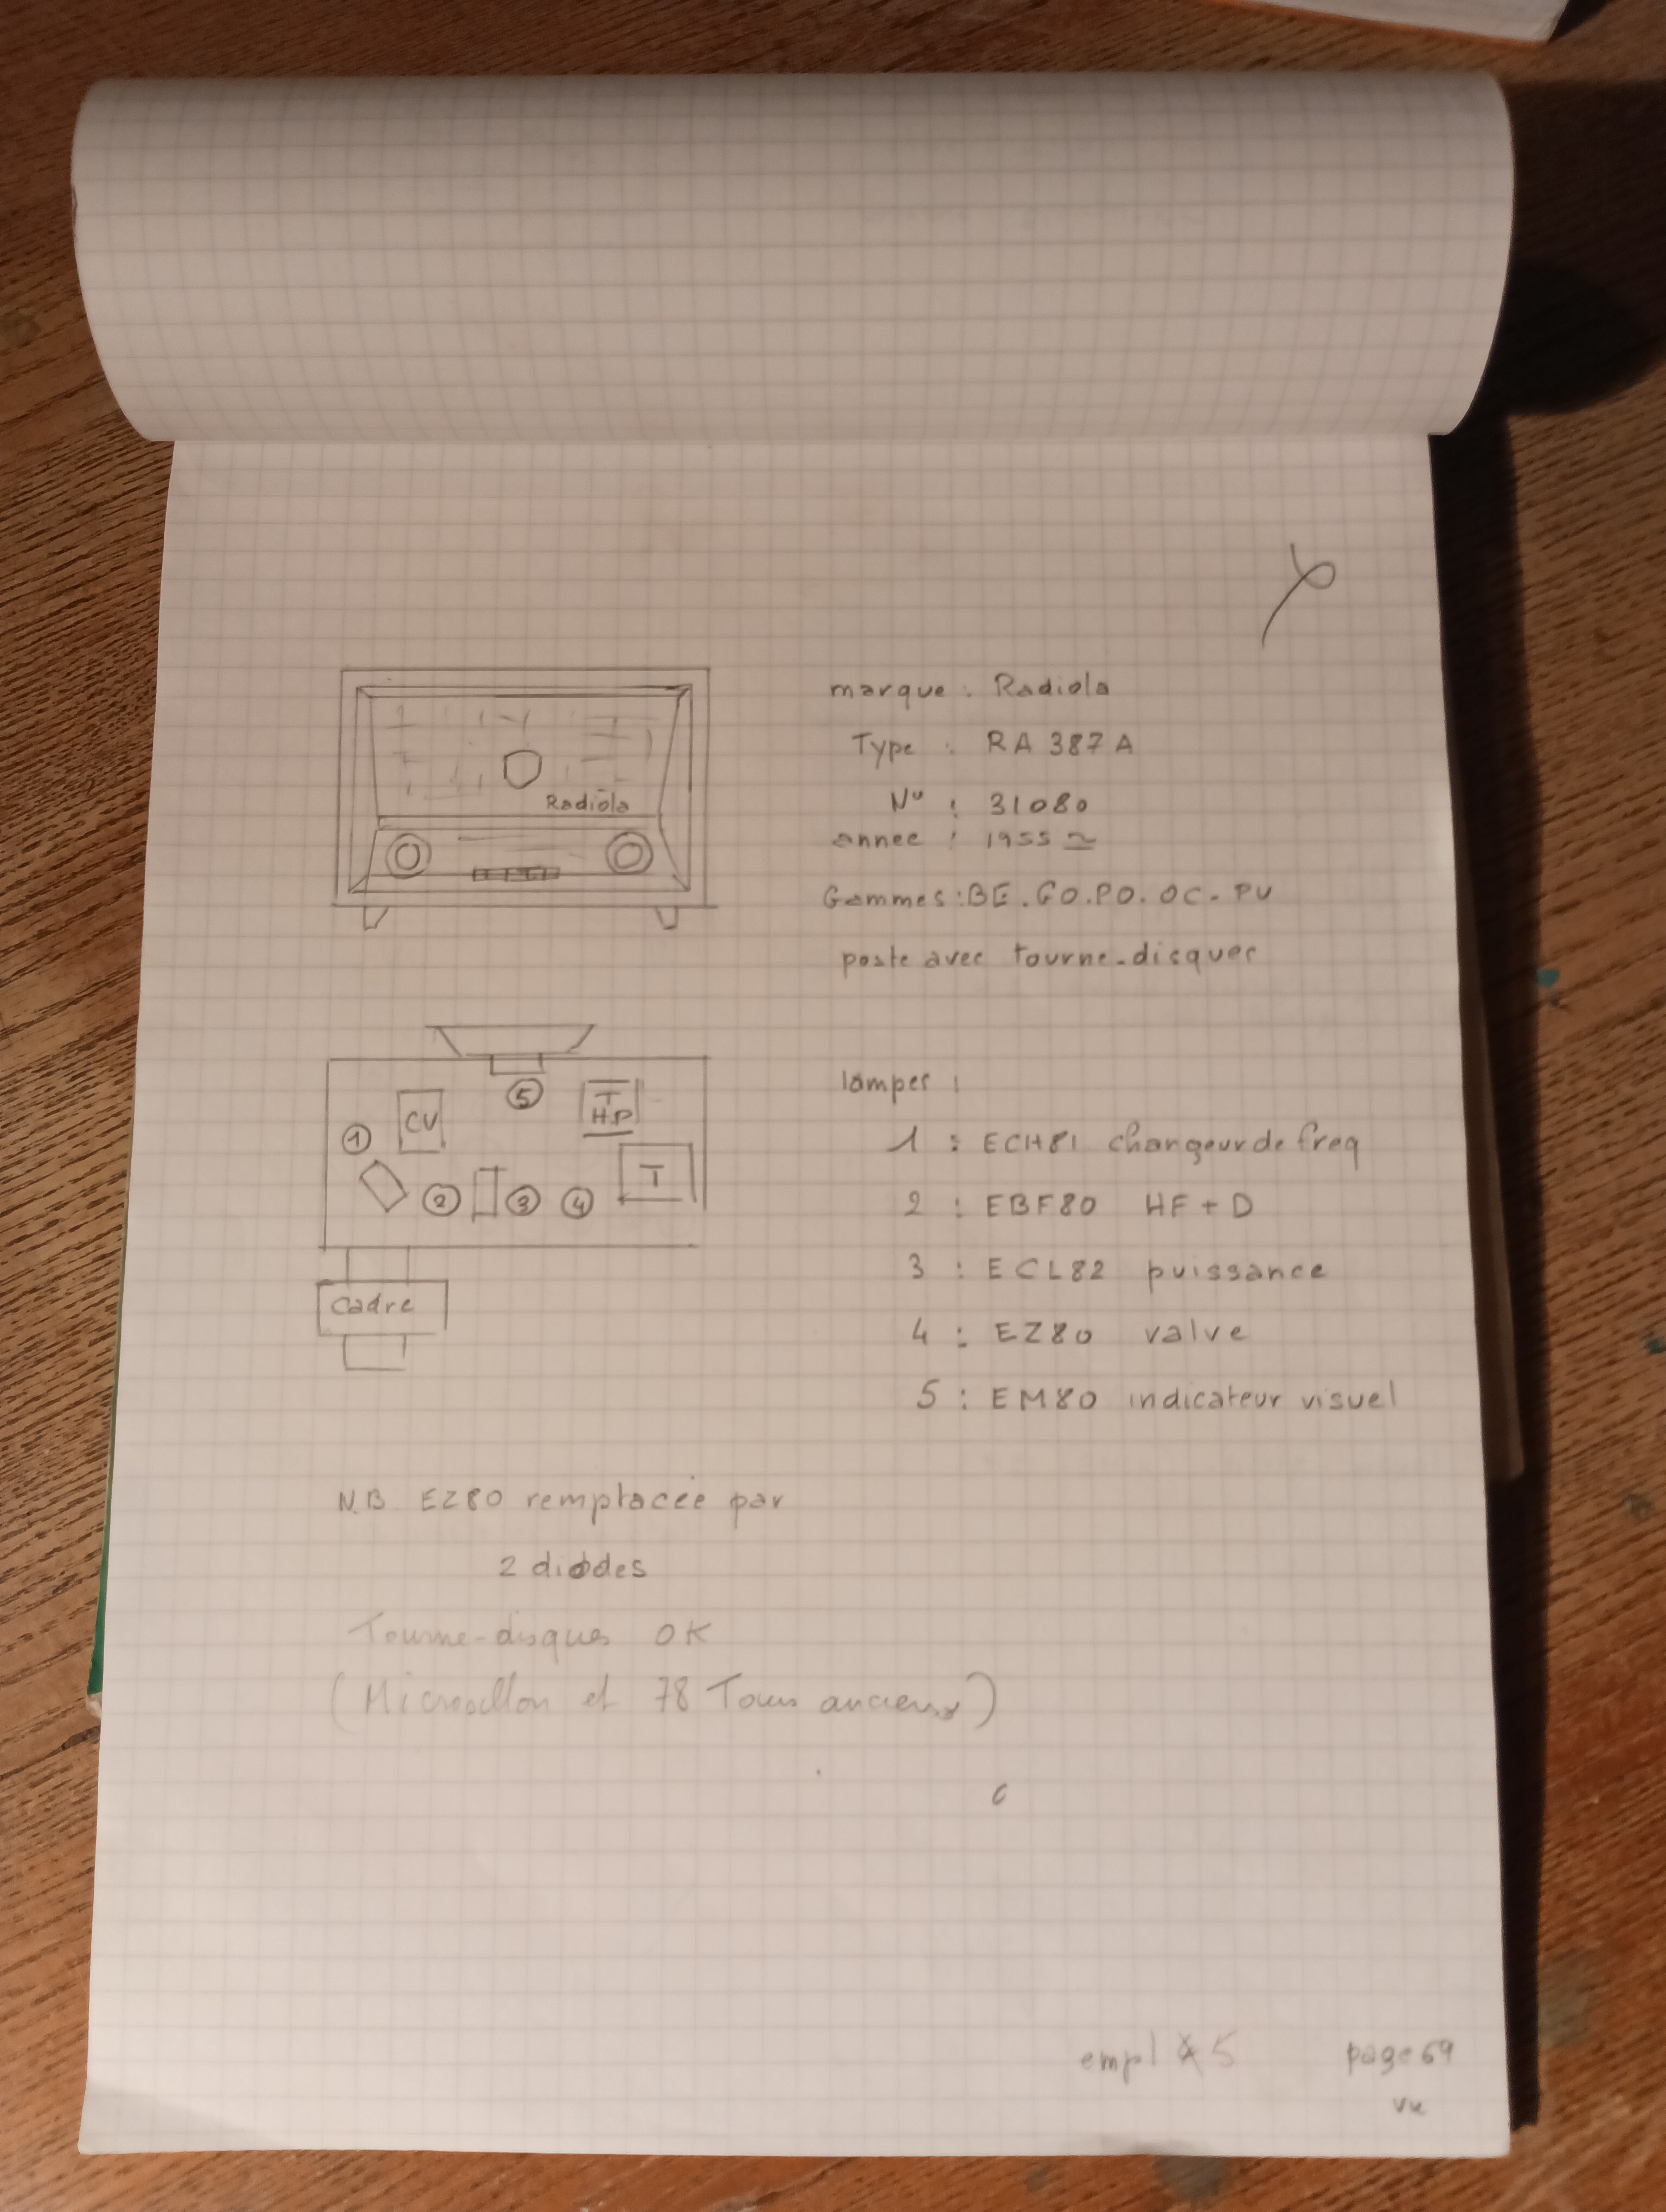 Radiola
marque : Radiola
Type : RA 387 A
N° : 31080
annee : 1955 ≃
Gammes : BE . GO . PO . OC - PU
poste avec tourne-disques
CV
T
HP
T
1
2
3
4
5
Cadre
lampes :
1 : ECH81 changeur de freq
2 : EBF80 HF + D
3 : ECL82 puissance
4 : EZ80 valve
5 : EM80 indicateur visuel
N.B EZ80 remplacée par
2 diodes
Tourne-disques OK
(Microsillon et 78 Tours anciens)
empl 5
page 69
vu